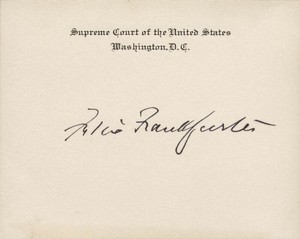 Supreme Court of the United States
Washington, D.C.
Felix Frankfurter